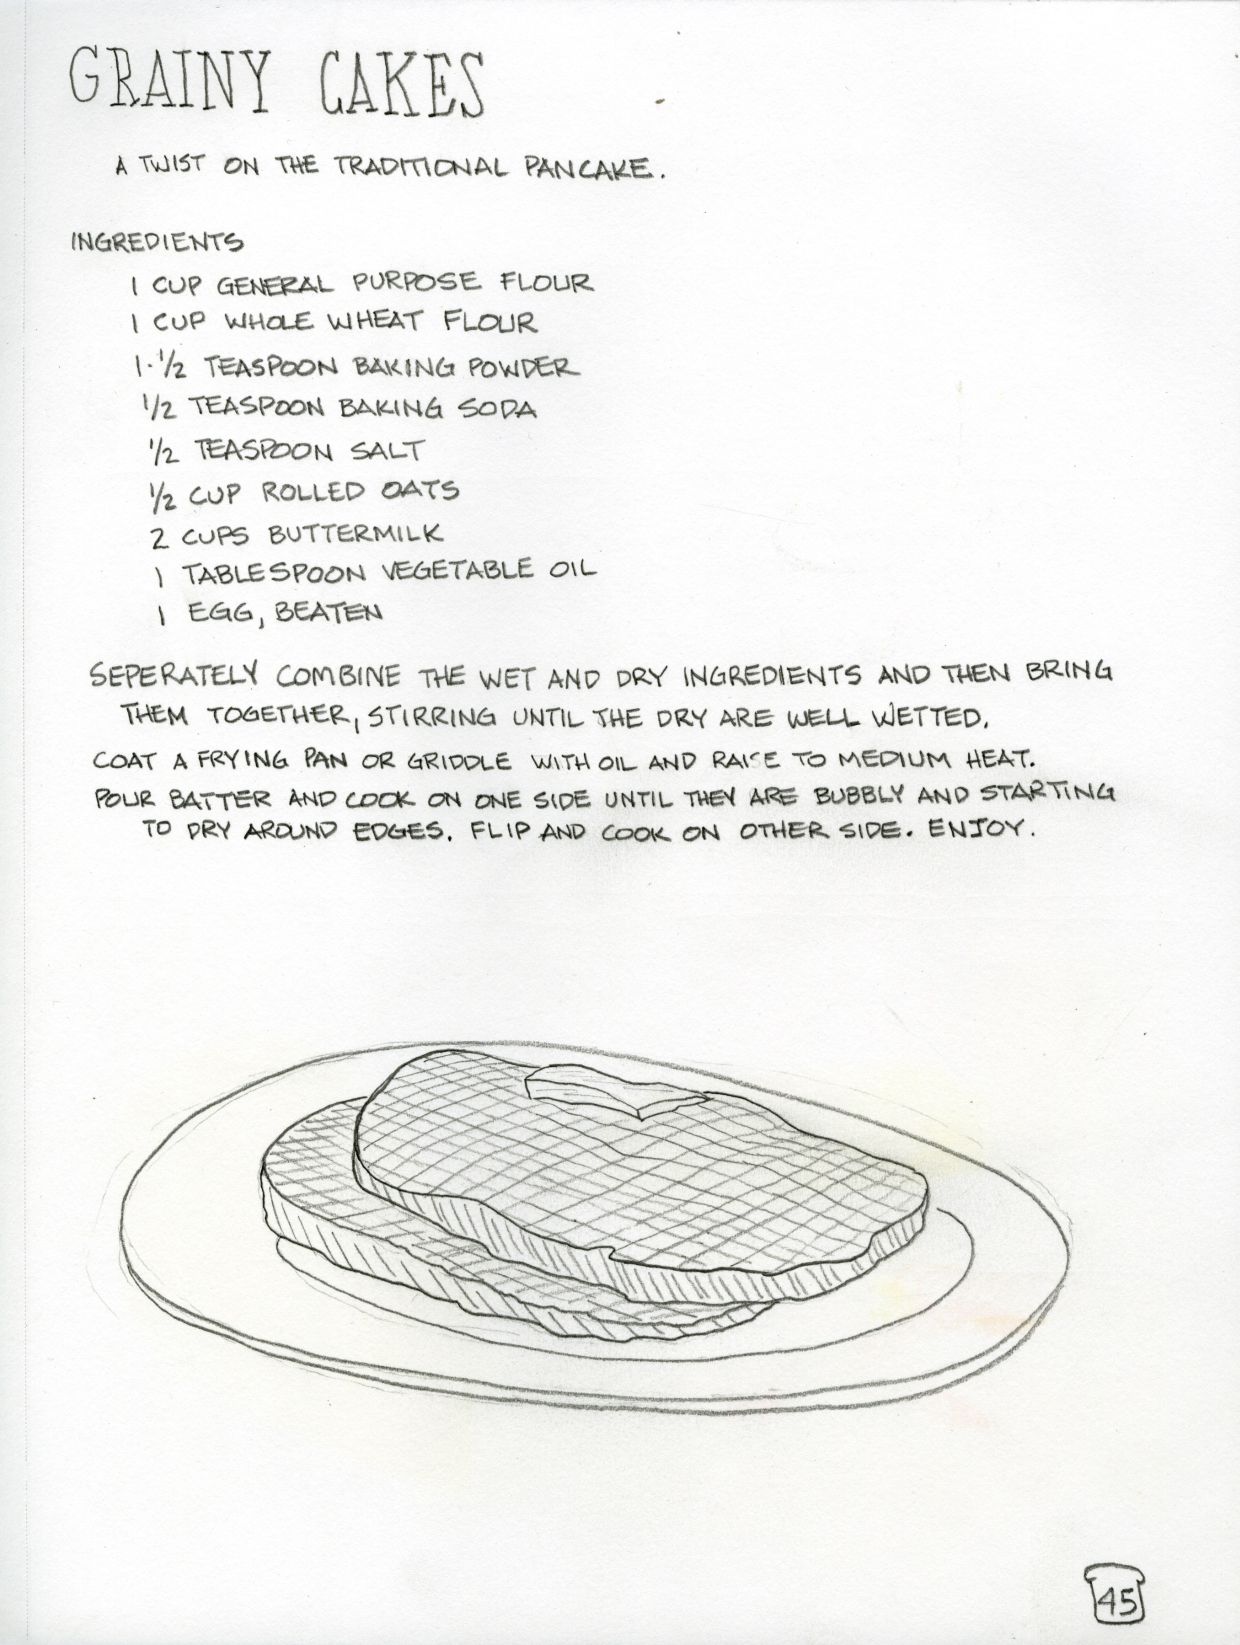 GRAINY CAKES
A TWIST ON THE TRADITIONAL PANCAKE.
INGREDIENTS
1 CUP GENERAL PURPOSE FLOUR
1 CUP WHOLE WHEAT FLOUR
1·1/2 TEASPOON BAKING POWDER
1/2 TEASPOON BAKING SODA
1/2 TEASPOON SALT
1/2 CUP ROLLED OATS
2 CUPS BUTTERMILK
1 TABLESPOON VEGETABLE OIL
1 EGG, BEATEN
SEPERATELY COMBINE THE WET AND DRY INGREDIENTS AND THEN BRING
THEM TOGETHER, STIRRING UNTIL THE DRY ARE WELL WETTED.
COAT A FRYING PAN OR GRIDDLE WITH OIL AND RAISE TO MEDIUM HEAT.
POUR BATTER AND COOK ON ONE SIDE UNTIL THEY ARE BUBBLY AND STARTING
TO DRY AROUND EDGES. FLIP AND COOK ON OTHER SIDE. ENJOY.
45